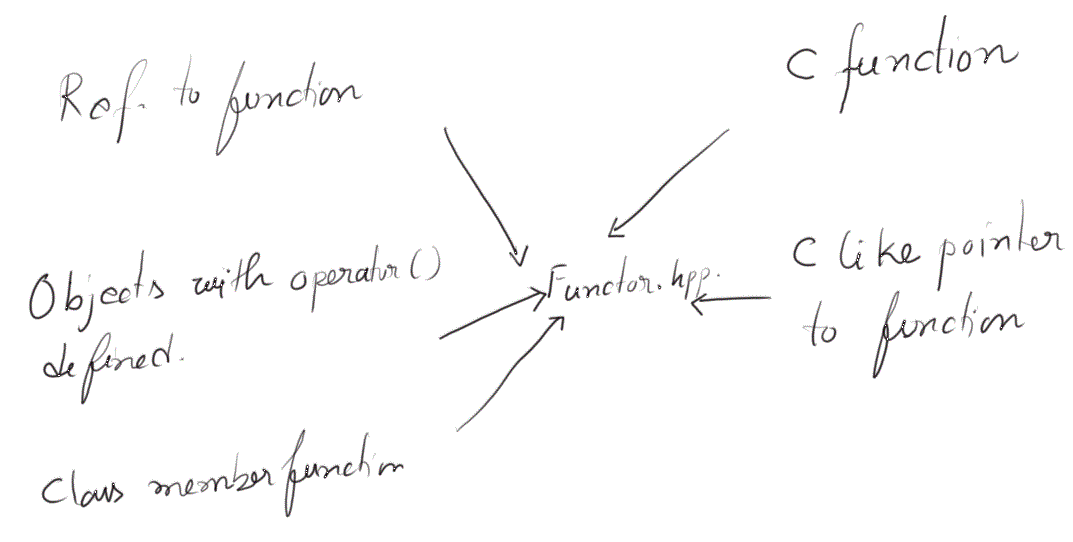 Ref. to function
C function
Objects with operator()
defined.
Functor.hpp.
C like pointer
to function
Class member function